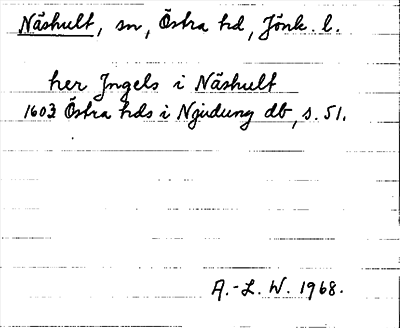 Näshult, sn, Östra hd, Jönk. l.
her Jngels i Näshult
1603 Östra hds i Njudung db, s. 51.
A.-L. W. 1968.